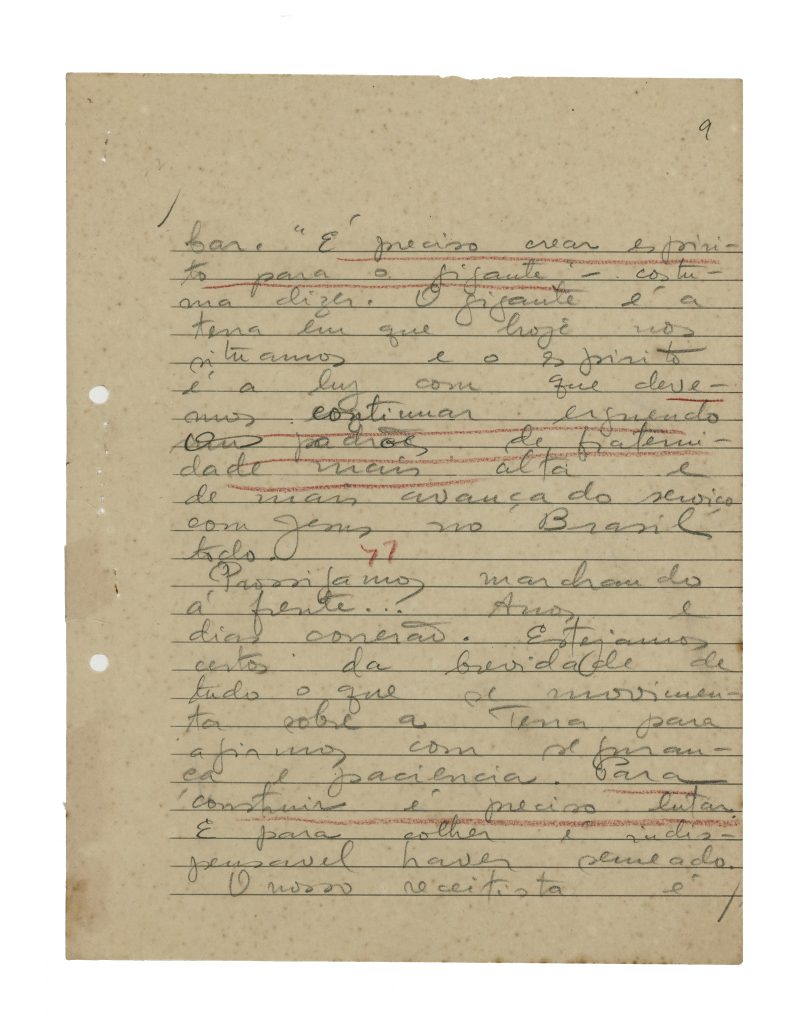 9
bar. "É preciso crear espiri-
to para o gigante" – costu-
ma dizer. O gigante é a
terra em que hoje nos
situamos e o espirito
é a luz com que deve-
mos continuar erguendo
um padrão de fraterni-
dade mais alta e
de mais avançado serviço
com Jesus no Brasil
todo.
Prossigamos marchando
á frente... Anos e
dias correrão. Estejamos
certos da brevidade de
tudo o que se movimen-
ta sobre a Terra para
agirmos com seguran-
ça e paciencia. Para
construir é preciso lutar.
E para colher é indis-
pensavel haver semeado.
O nosso receitista é